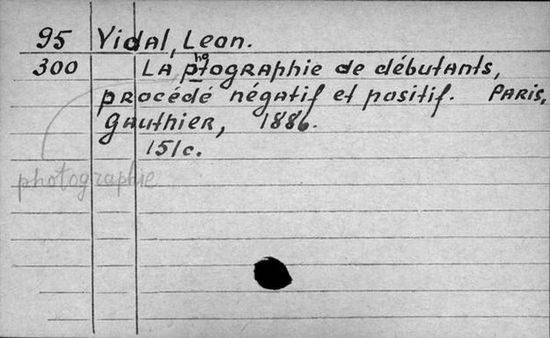 95 Vidal, Leon.
300 La photographie de débutants,
procédé négatif et positif. Paris,
Gauthier, 1886.
151c.
photographie